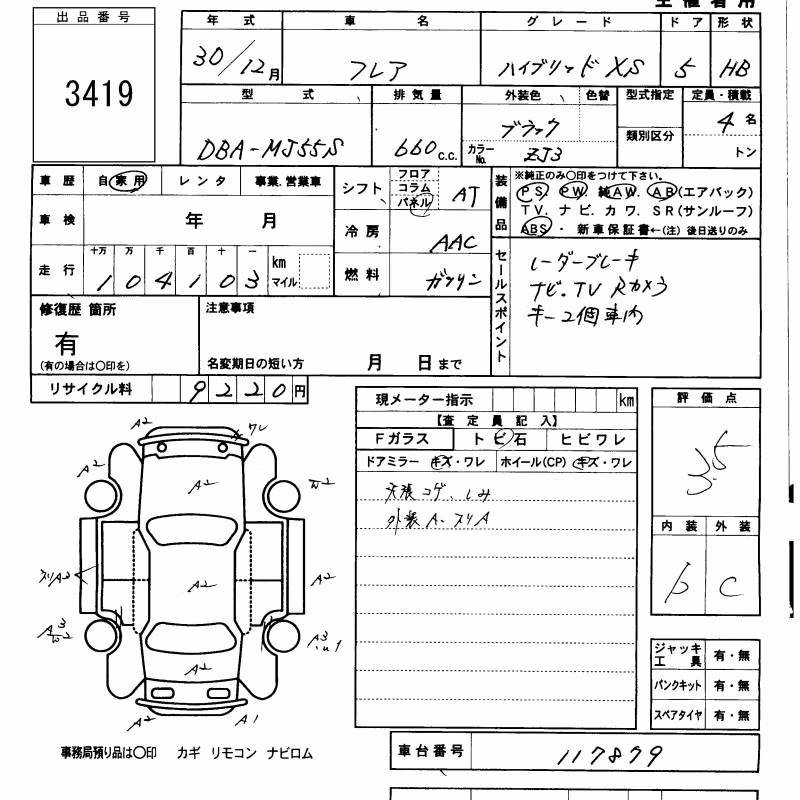 主催者用
出品番号
3419
年式 車名 グレード ドア 形状
30/12月 フレア ハイブリッド XS 5 HB
型式 排気量 外装色 色替 型式指定 定員・積載
DBA-MJ55S 660 c.c. ブラック カラーNo. ZJ3 類別区分 4名 トン
車歴 自家用 レンタ 事業、営業車
シフト フロア コラム パネル AT
装備品 ※純正のみ〇印をつけて下さい。
PS. PW. 純AW. AB(エアバック)
TV. ナビ. カワ. SR(サンルーフ)
ABS・新車保証書←(注)後日送りのみ
車検 年 月
冷房 AAC
走行 十万 万 千 百 十 一
104103 km マイル
燃料 ガソリン
セールスポイント
レーダーブレーキ
ナビ.TV Rカメラ
キー2個車内
修復歴 箇所
有
(有の場合は〇印を)
注意事項
名変期日の短い方 月 日まで
リサイクル料 9220円
現メーター指示 km
【査定員記入】
Fガラス トビ石 ヒビワレ
ドアミラー キズ・ワレ ホイール(CP) キズ・ワレ
天張コゲ、しみ
外装A.スリA
評価点
3.5
内装 外装
C
A2 ワレ
A2
A2
A2
A2
スリA2
A3
A3
A2
A2 A1
ジャッキ工具 有・無
パンクキット 有・無
スペアタイヤ 有・無
事務局預り品は〇印 カギ リモコン ナビロム
車台番号 117879